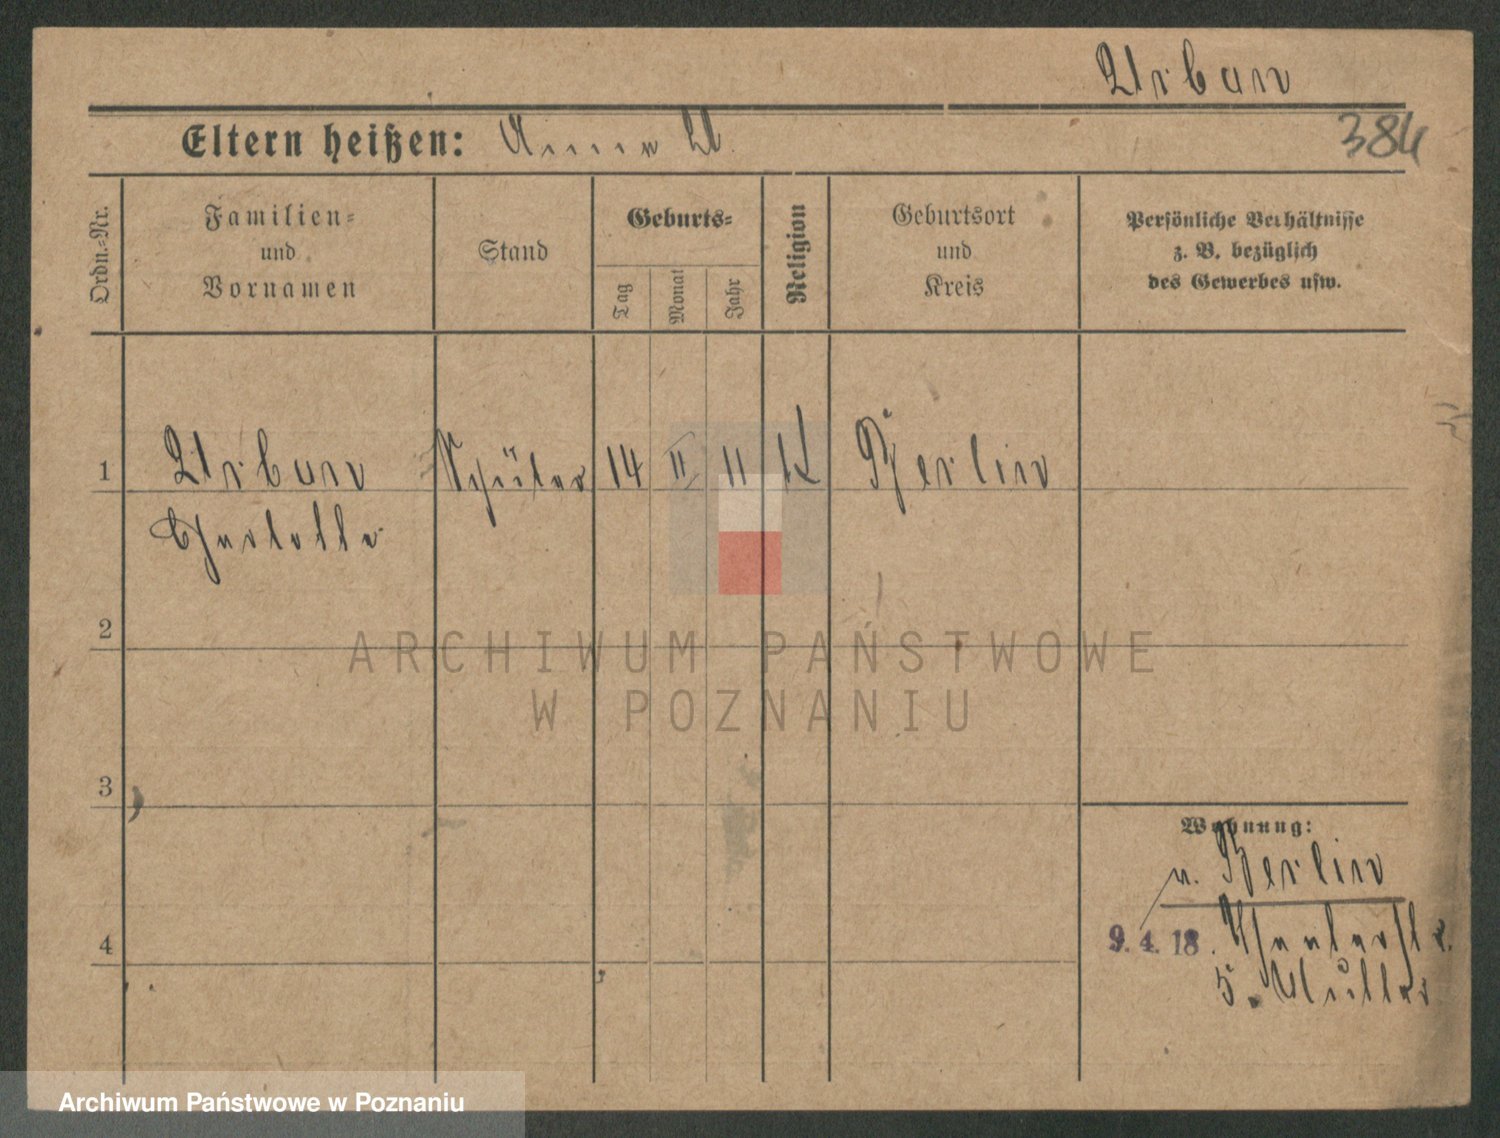 Urban
Eltern heißen: Anna U.
384
Ordn.=Nr.
Familien=
und
Vornamen
Stand
Geburts=
Tag
Monat
Jahr
Religion
Geburtsort
und
Kreis
Persönliche Verhältnisse
z. B. bezüglich
des Gewerbes usw.
1 Urban Schüler 14 II 11 K Berlin
Charlotte
2
3
4
Wohnung:
n. Berlin
9. 4. 18.
5.
ARCHIWUM PAŃSTWOWE
W POZNANIU
Archiwum Państwowe w Poznaniu